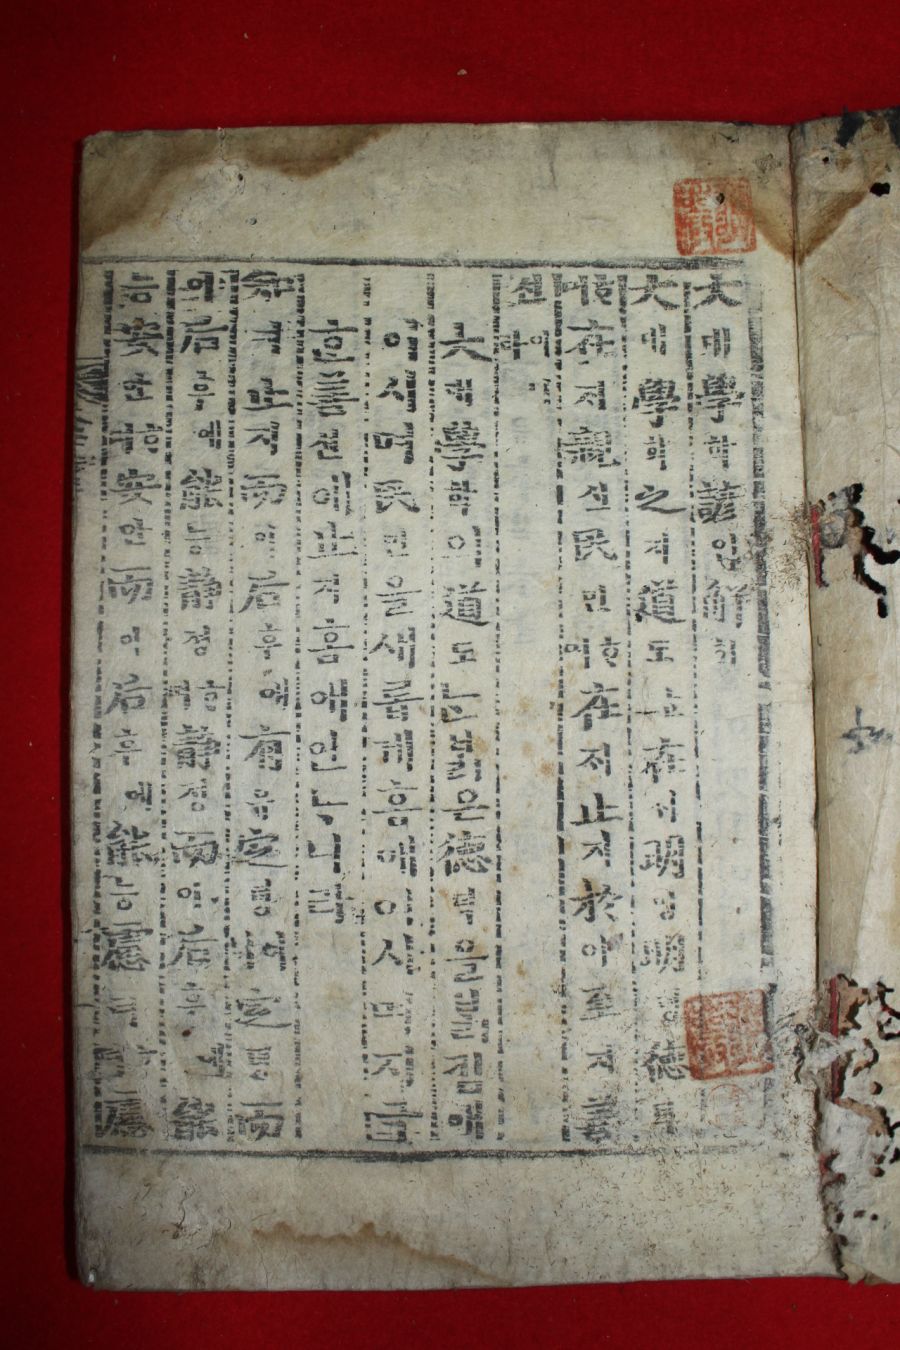 大대學학諺언解ᄒᆡ
大대學학之지道도ᄂᆞᆫ在ᄌᆡ明명明명德덕ᄒᆞ며
在ᄌᆡ親신民민ᄒᆞ며在ᄌᆡ止지於어至지善
션이니라
大대學학의道도ᄂᆞᆫᄇᆞᆯ근德덕을ᄇᆞᆯ킴애
이시며民민을새롭게홈애이시며지극
ᄒᆞᆫ善션에止지홈애인ᄂᆞ니라
知지止지而이后후에有유定뎡이니定뎡而
이后후에能능靜졍ᄒᆞ고靜졍而이后후에能
능安안ᄒᆞ고安안而이后후에能능慮려ᄒᆞ고慮